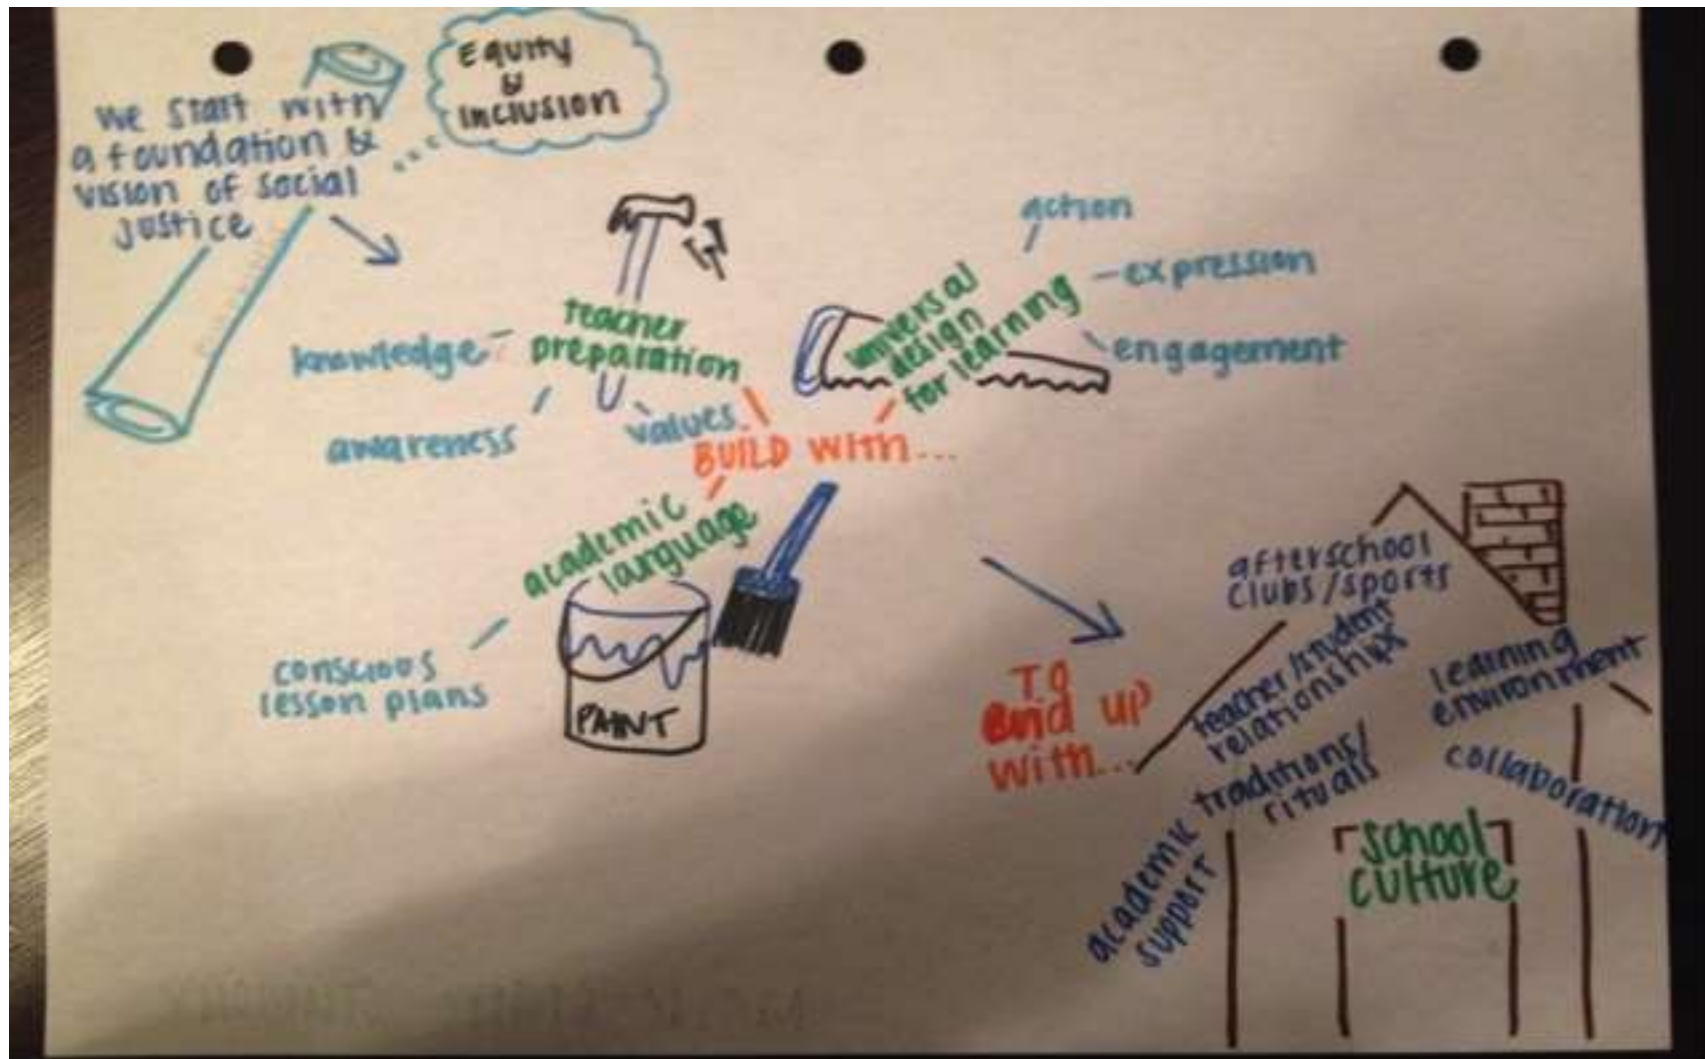 we start with
a foundation &
vision of social
justice
Equity
&
inclusion
teacher
preparation
knowledge
awareness
values
universal
design
for learning
action
expression
engagement
BUILD with...
academic
language
conscious
lesson plans
PAINT
TO
end up
with...
afterschool
clubs/sports
teacher/student
relationships
learning
environment
traditions/
rituals
collaboration
academic
support
school
culture